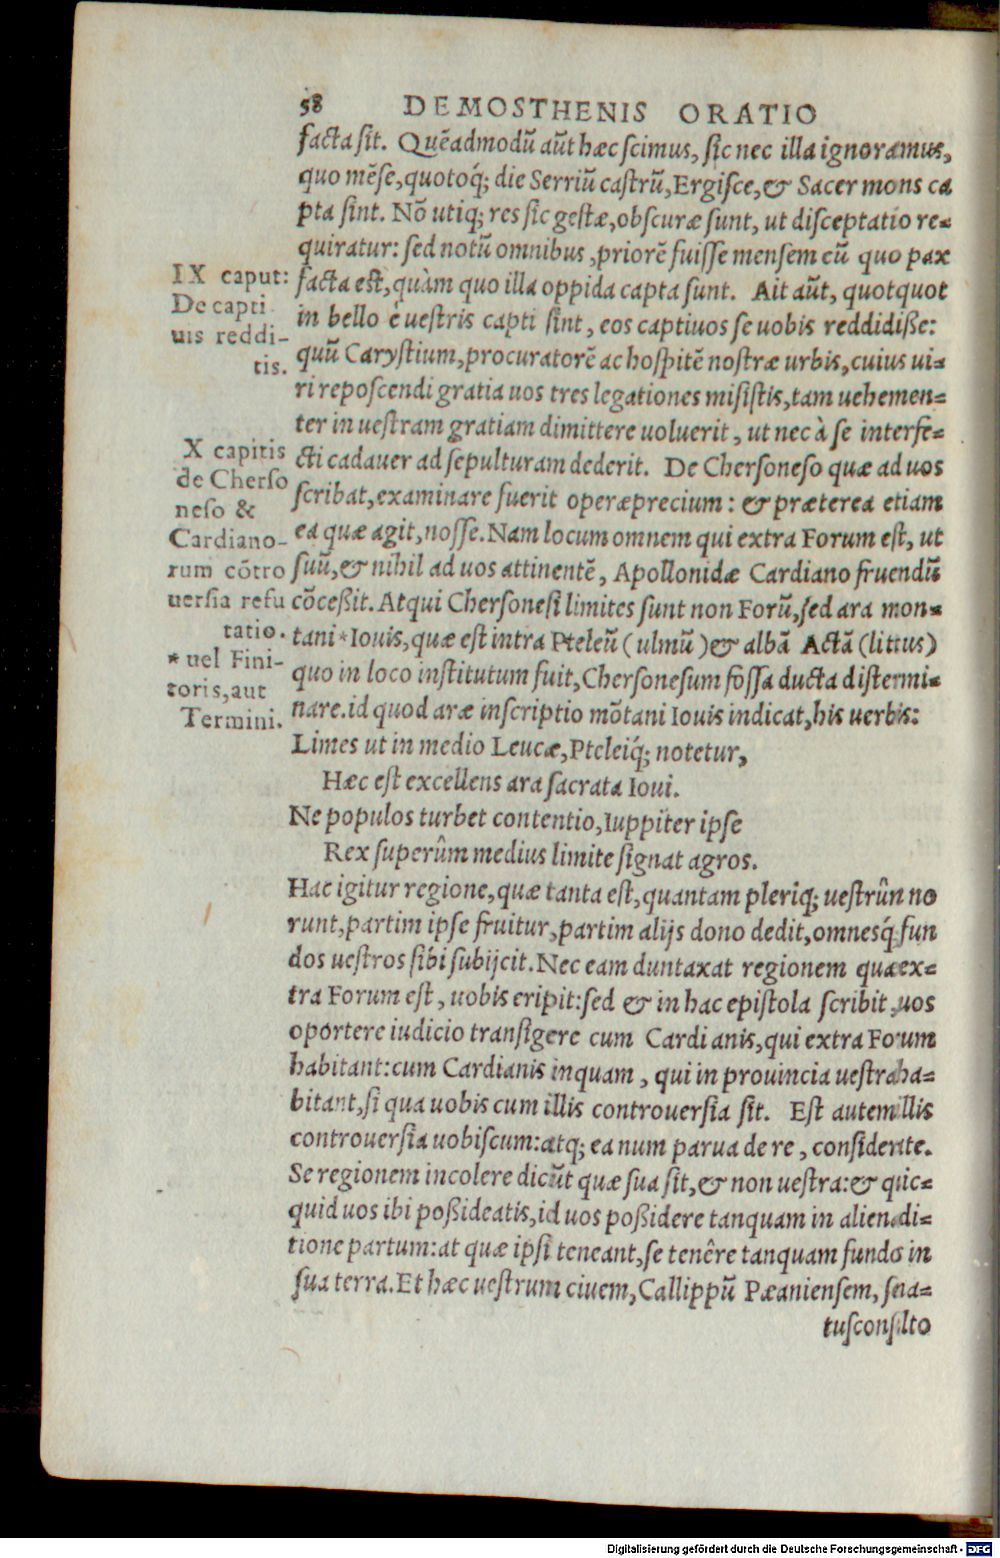 58 DEMOSTHENIS ORATIO
facta sit. Quẽadmodũ aũt hæc scimus, sic nec illa ignoramus,
quo mẽse, quotoq́; die Serriũ castrũ, Ergisce, & Sacer mons ca
pta sint. Nõ utiq; res sic gestæ, obscuræ sunt, ut disceptatio re-
quiratur: sed notũ omnibus, priorẽ fuisse mensem eũ quo pax
facta est, quàm quo illa oppida capta sunt. Ait aũt, quotquot
in bello è uestris capti sint, eos captiuos se uobis reddidiße:
quũ Carystium, procuratorẽ ac hospitẽ nostræ urbis, cuius ui-
ri reposcendi gratia uos tres legationes misistis, tam uehemen-
ter in uestram gratiam dimittere uoluerit, ut nec à se interfe-
cti cadauer ad sepulturam dederit. De Chersoneso quæ ad uos
scribat, examinare fuerit operæprecium: & præterea etiam
ea quæ agit, nosse. Nam locum omnem qui extra Forum est, ut
suũ, & nihil ad uos attinentẽ, Apollonidæ Cardiano fruendũ
cõceßit. Atqui Chersonesi limites sunt non Forũ, sed ara mon-
tani * Iouis, quæ est intra Pteleũ (ulmũ) & albã Actã (littus)
quo in loco institutum fuit, Chersonesum fossa ducta distermi-
nare. id quod aræ inscriptio mõtani Iouis indicat, his uerbis:
Limes ut in medio Leucæ, Pteleiq́; notetur,
Hæc est excellens ara sacrata Ioui.
Ne populos turbet contentio, Iuppiter ipse
Rex superûm medius limite signat agros.
Hac igitur regione, quæ tanta est, quantam pleriq; uestrûn no
runt, partim ipse fruitur, partim alijs dono dedit, omnesq́; fun
dos uestros sibi subijcit. Nec eam duntaxat regionem quæ ex-
tra Forum est, uobis eripit: sed & in hac epistola scribit, uos
oportere iudicio transigere cum Cardianis, qui extra Forum
habitant: cum Cardianis inquam, qui in prouincia uestra ha-
bitant, si qua uobis cum illis controuersia sit. Est autem illis
controuersia uobiscum: atq; ea num parua de re, considerate.
Se regionem incolere dicũt quæ sua sit, & non uestra: & quic-
quid uos ibi poßideatis, id uos poßidere tanquam in aliena di-
tione partum: at quæ ipsi teneant, se tenêre tanquam fundo in
sua terra. Et hæc uestrum ciuem, Callippũ Pæaniensem, sena-
tusconsulto
IX caput:
De capti
uis reddi-
tis.
X capitis
de Cherso
neso &
Cardiano-
rum cõtro
uersia refu
tatio.
* uel Fini-
toris, aut
Termini.
Digitalisierung gefördert durch die Deutsche Forschungsgemeinschaft - DFG